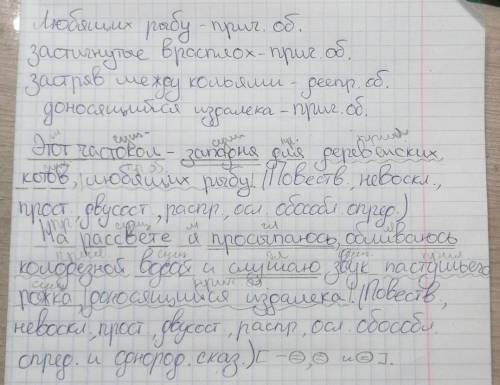 Любящих рыбу - прич. об.
застигнутые врасплох - прич. об.
застряв между кольями - деепр. об.
доносящийся издалека - прич. об.
Этот частокол - западня для деревенских
котов, любящих рыбу. (Повеств, невоскл.,
прост, двусост, распр, осл. обособл. опред.)
На рассвете я просыпаюсь, обливаюсь
колодезной водой и слушаю звук пастушьего
рожка, доносящийся издалека. (Повеств,
невоскл, прост, двусост, распр, осл. обособл.
опред. и однород. сказ.) [ - =, = и = ].